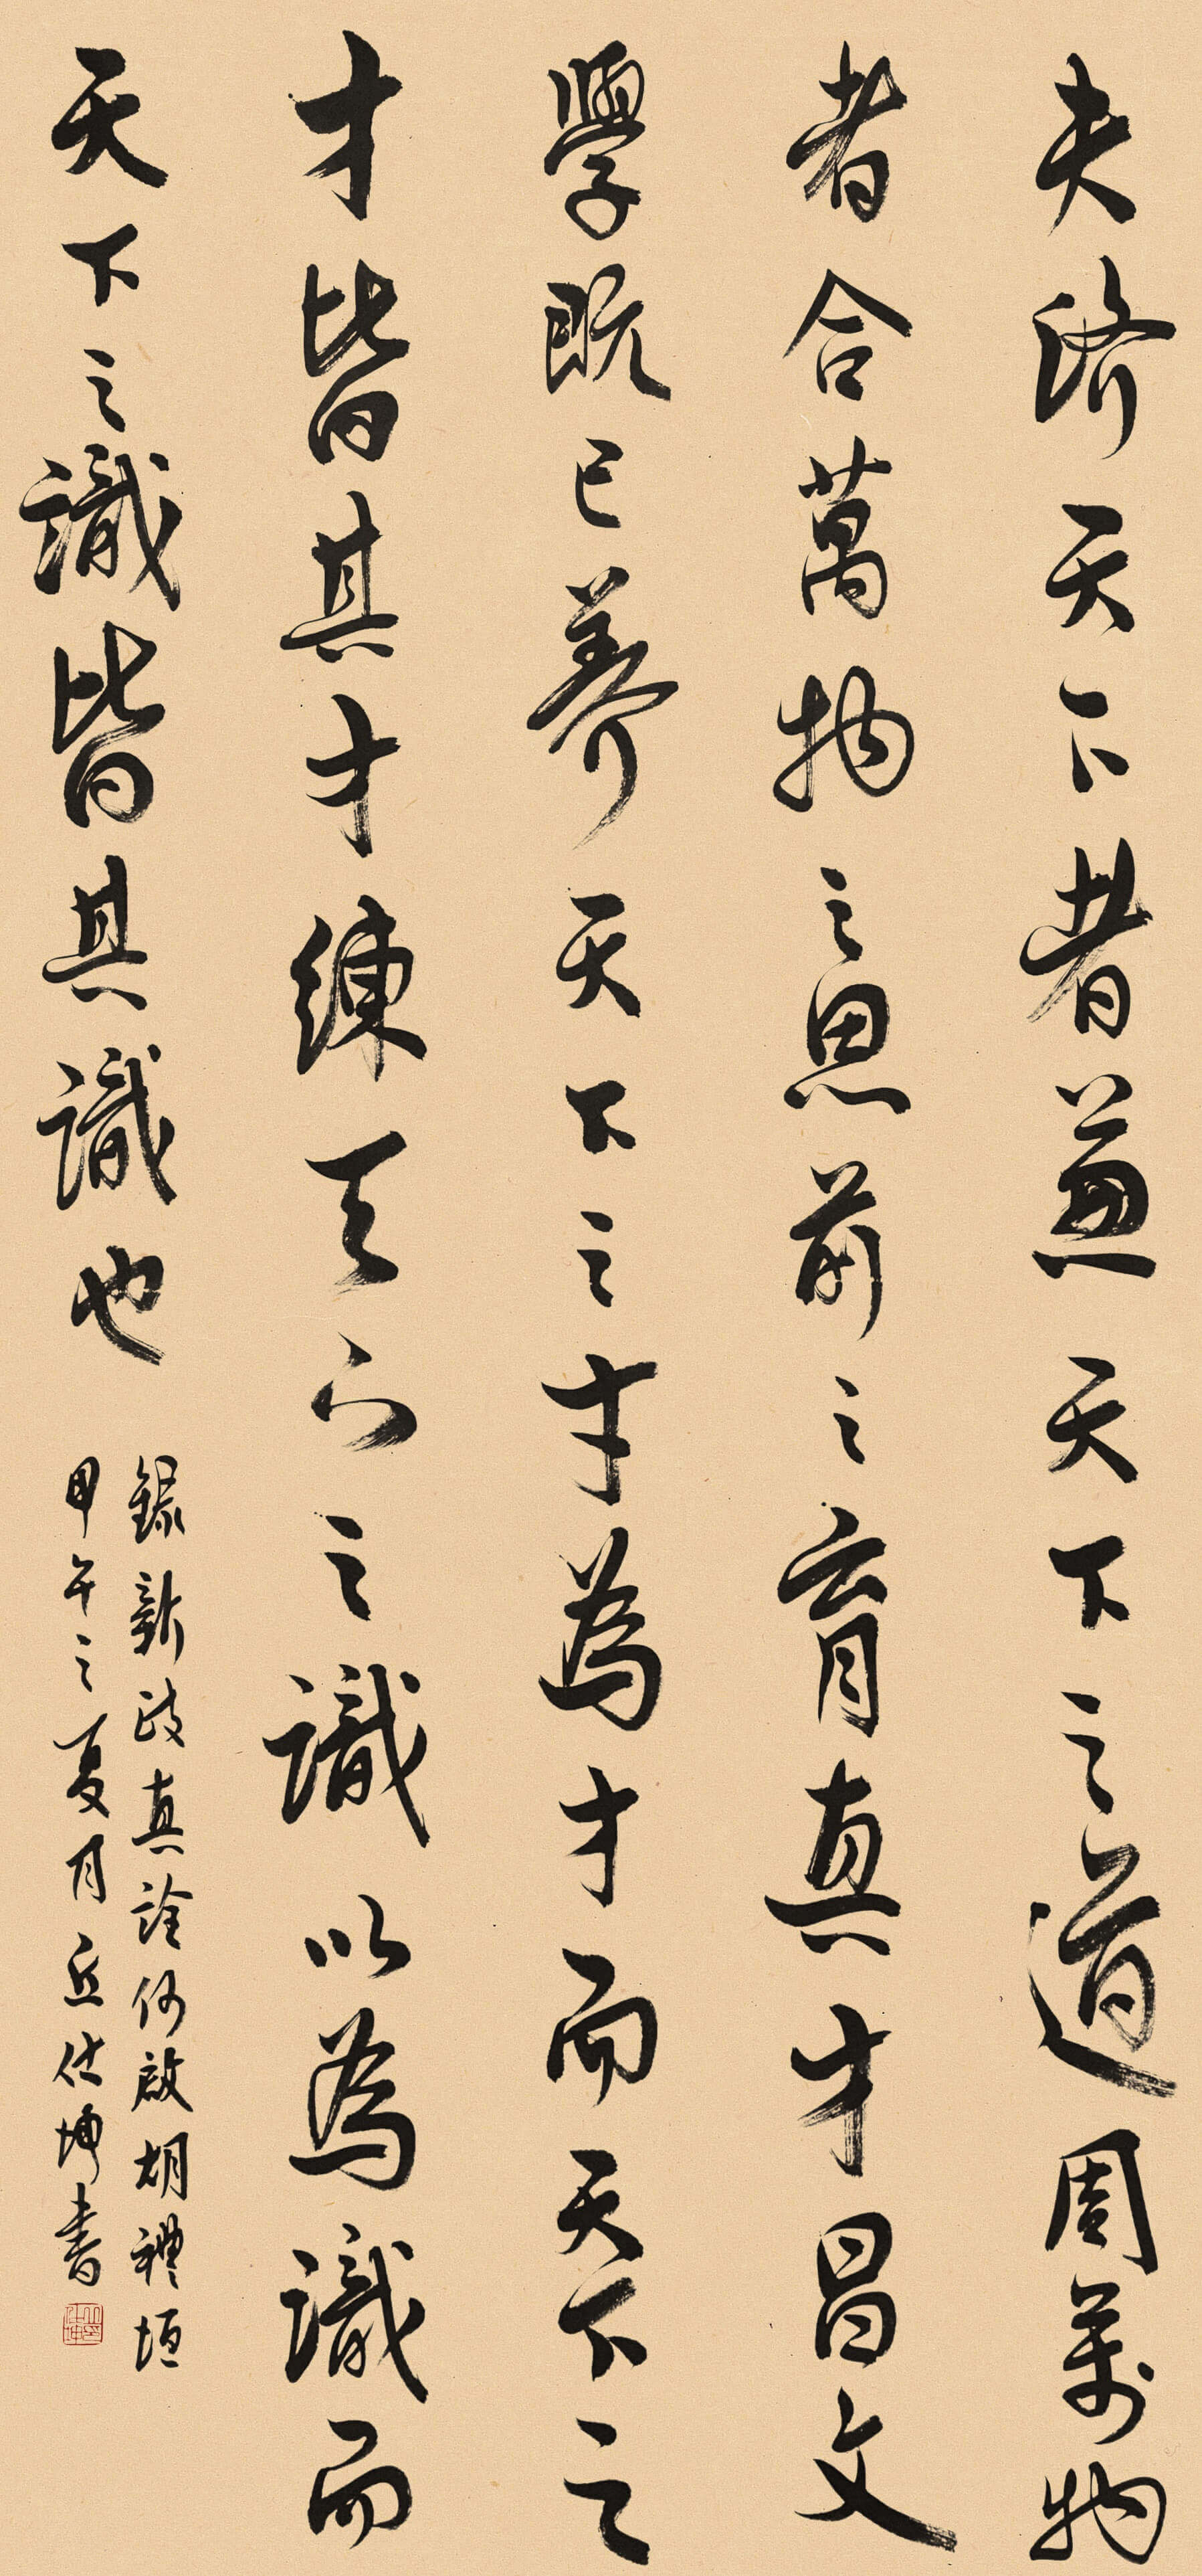 夫濟天下者兼天下之道周萬物
者合萬物之思前之育真才昌文
學既已養天下之才為才而天下之
才皆其才練天下之識以為識而
天下之識皆其識也
錄新政真詮何啟胡禮垣
甲午之夏月丘仕坤書